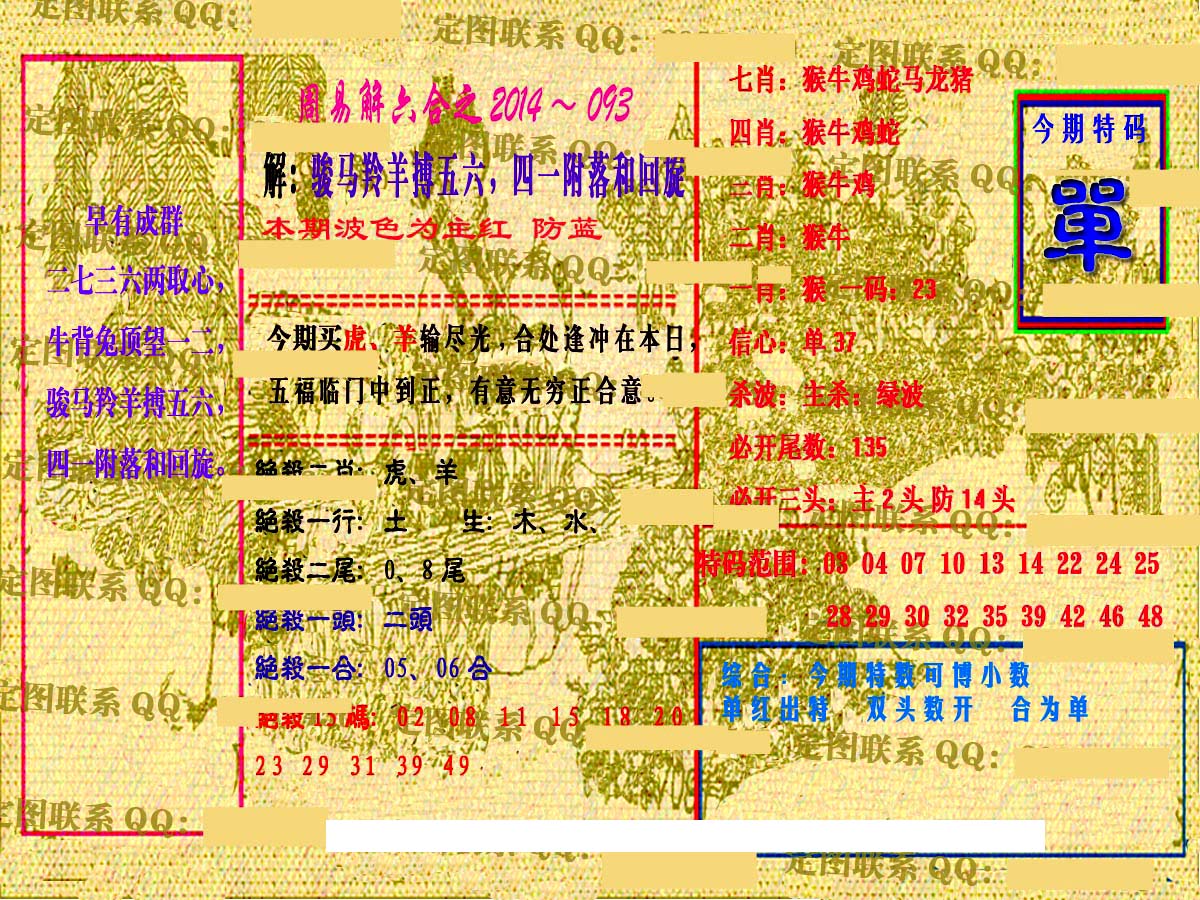 周易解六合之 2014～093
早有成群
二七三六两取心，
牛背兔顶望一二，
骏马羚羊搏五六，
四一附落和回旋。
解：骏马羚羊搏五六，四一附落和回旋
本期波色为主红 防蓝
今期买虎、羊输尽光，合处逢冲在本日，
五福临门中到正，有意无穷正合意。
絕殺二肖：虎、羊
絕殺一行：土 生：木、水、
絕殺二尾：0、8尾
絕殺一頭：二頭
絕殺一合：05、06合
絕殺13碼：02 08 11 15 18 20
23 29 31 39 49
七肖：猴牛鸡蛇马龙猪
四肖：猴牛鸡蛇
三肖：猴牛鸡
二肖：猴牛
一肖：猴 一码：23
信心：单37
杀波：主杀：绿波
必开尾数：135
必开三头：主2头防14头
今期特码
單
特码范围：03 04 07 10 13 14 22 24 25
28 29 30 32 35 39 42 46 48
综合：今期特数可博小数
单红出特 双头数开 合为单
定图联系 QQ：
定图联系 QQ：
定图联系 QQ：
定图联系 QQ：
定图联系 QQ：
定图联系 QQ：
定图联系 QQ：
定图联系 QQ：